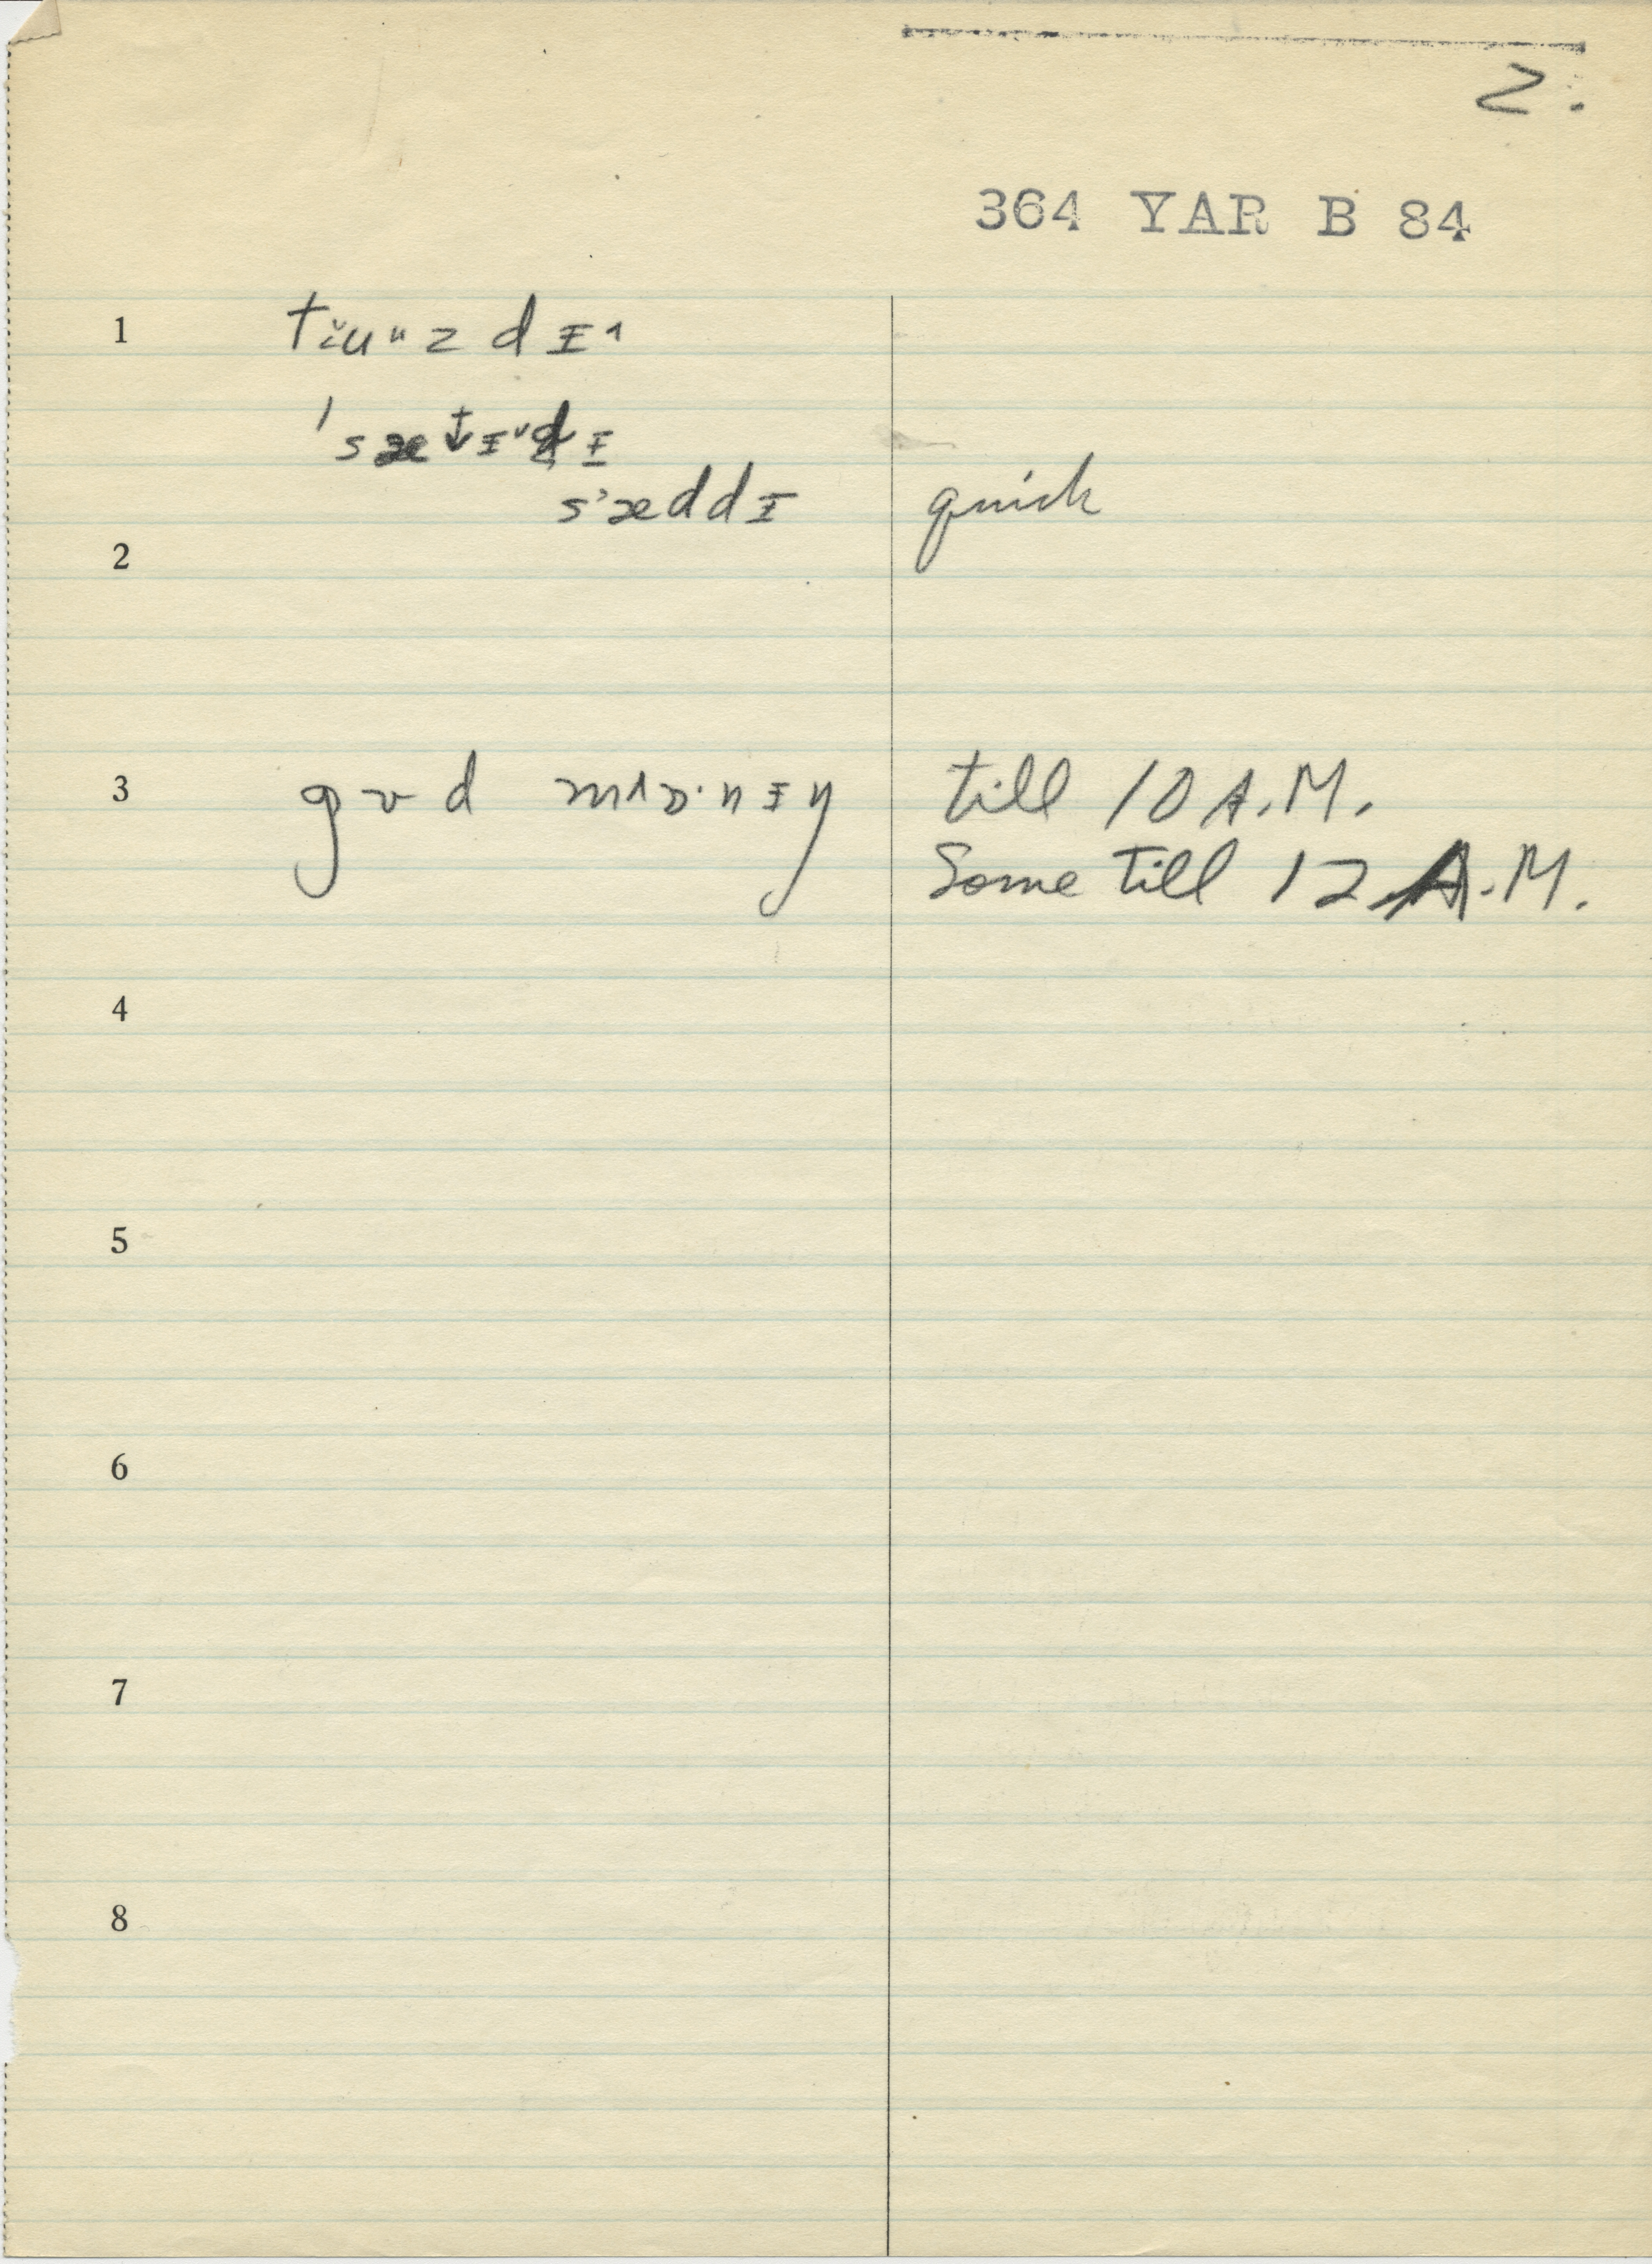 2.
364 YAR B 84
1 tĭuᵘzdɪ˄
'sætɪ˅dɪ
s'æddɪ quick
2
3 gʊd mʌɒ·nɪŋ till 10 A.M.
Some till 12 A.M.
4
5
6
7
8